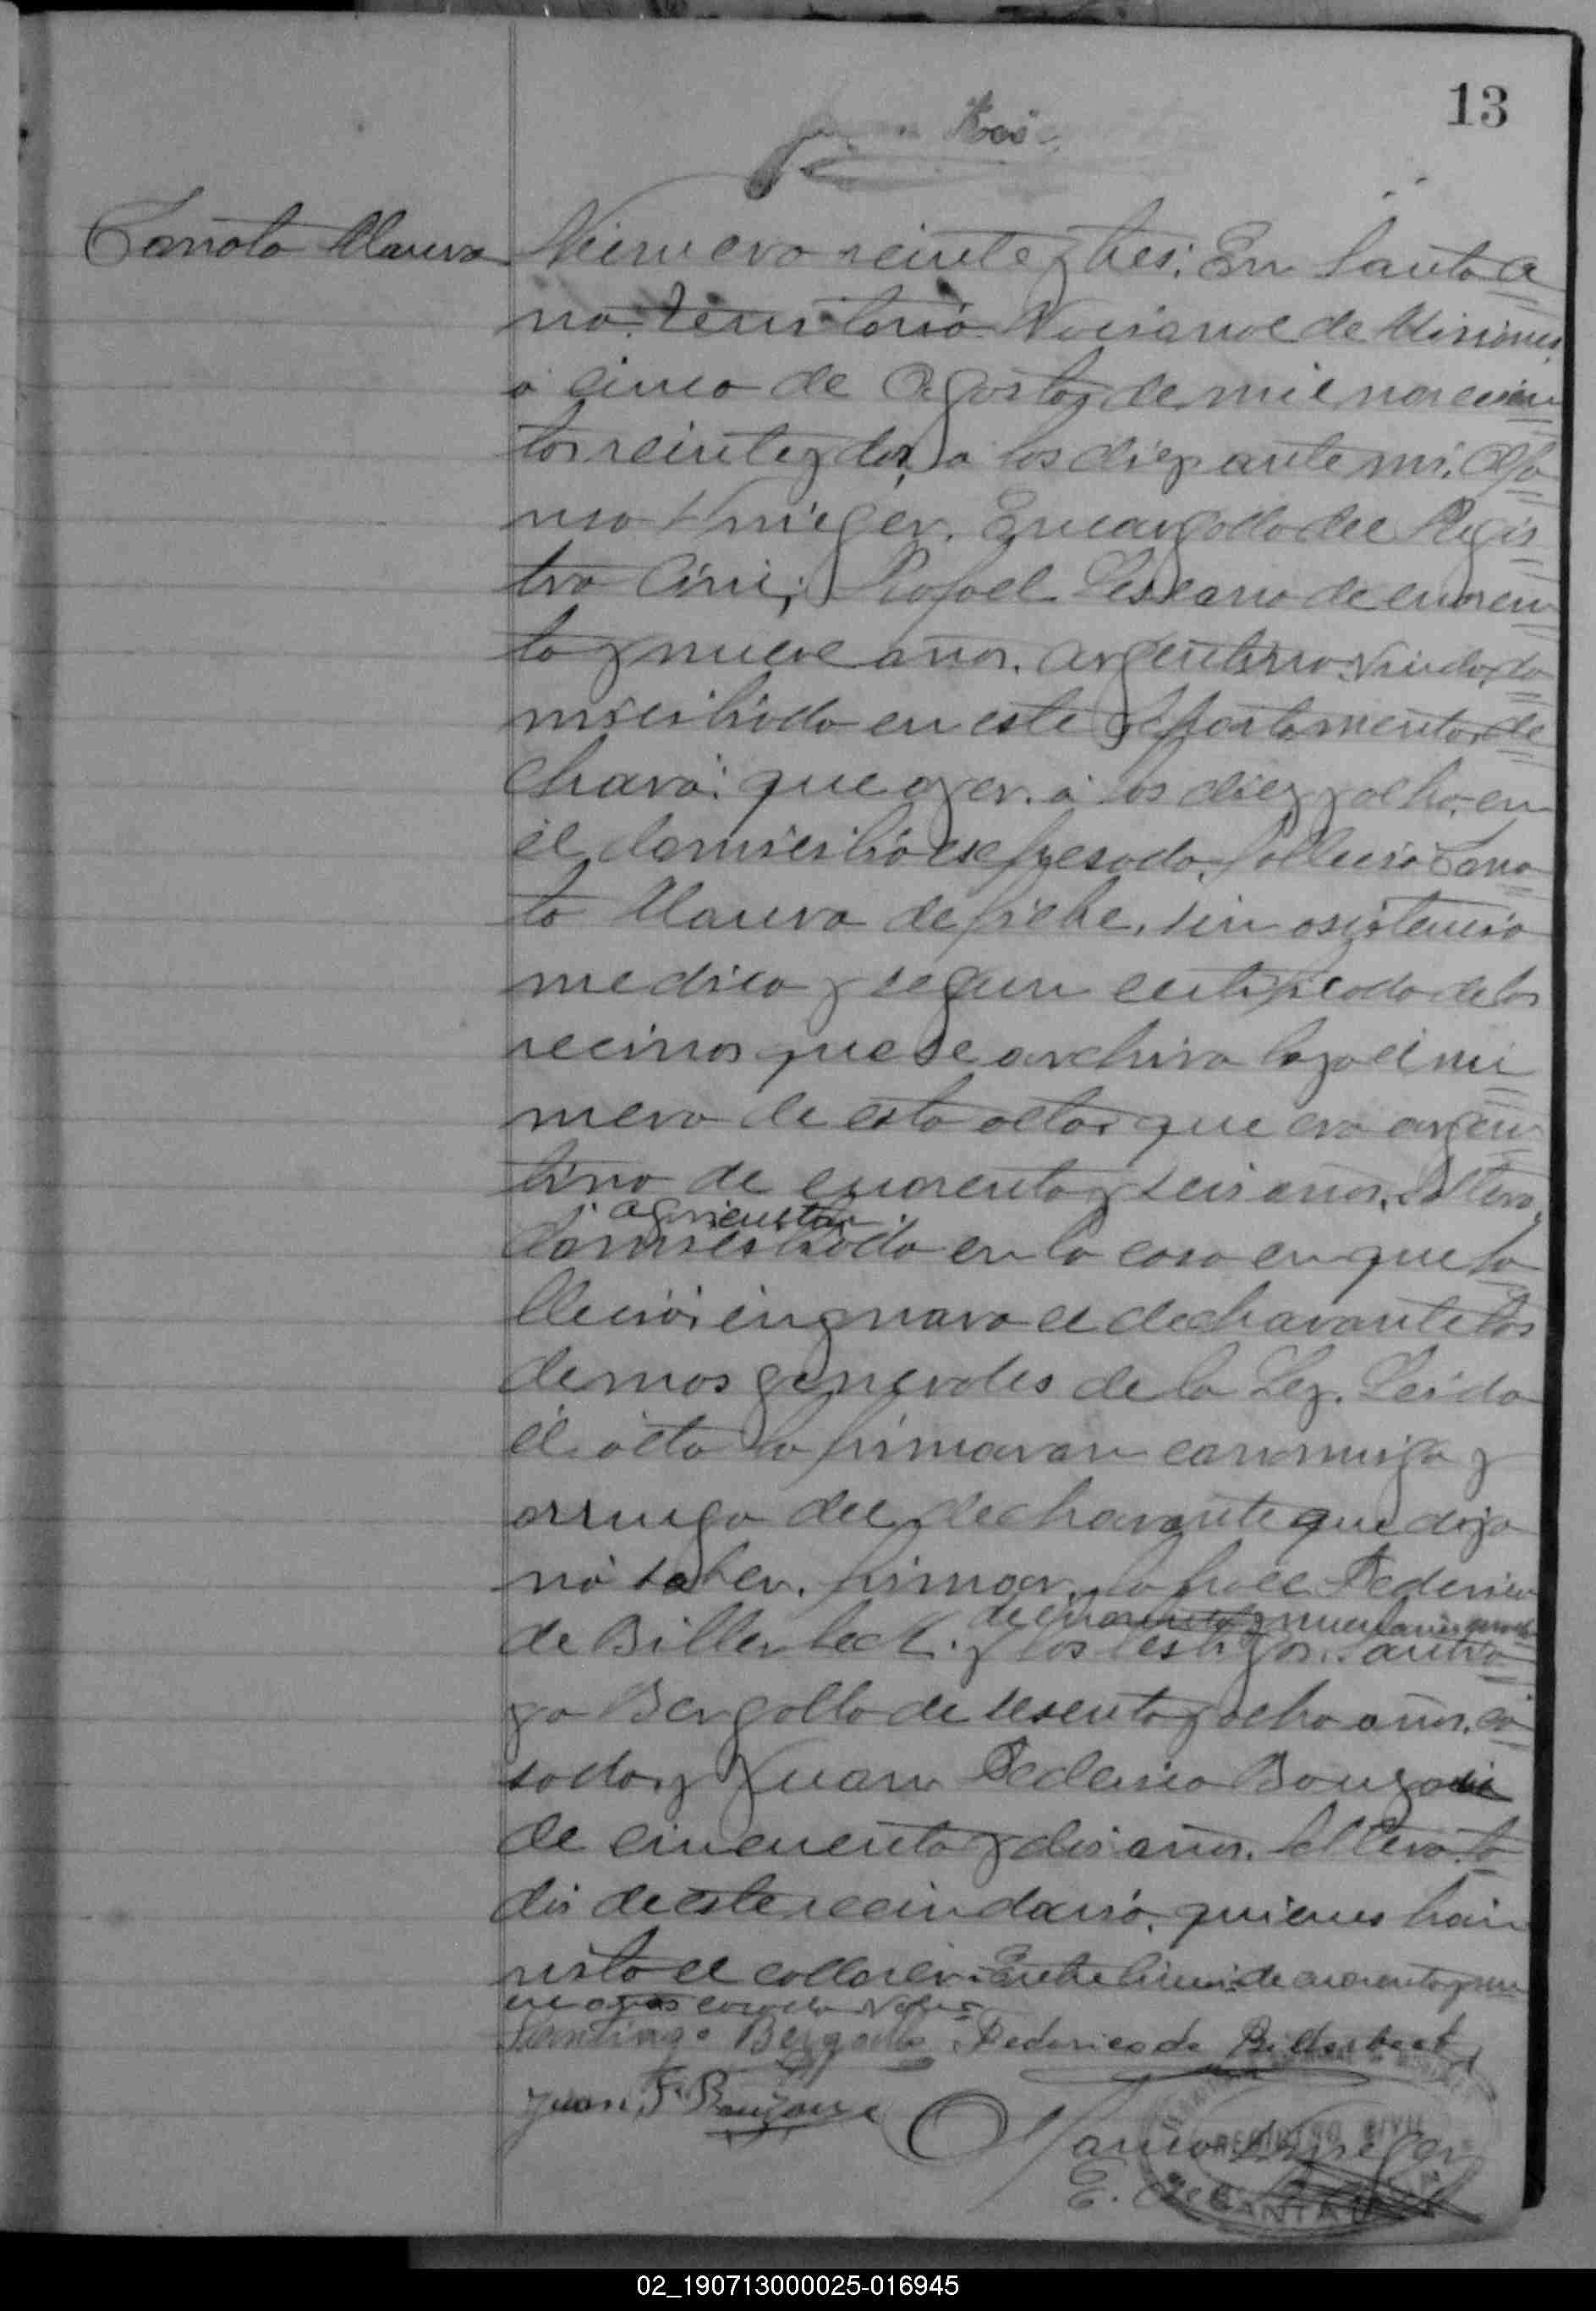 13
Numero veinte y tres: En Santa A
na. Territorio Nacional de Misiones,
a cinco de Agosto de mil novecien
tos veinte y dos, a las diez ante mi, Alfo
nso Krieger, Encargado del Regis
tro Civil, Rafael de cuaren
ta y nueve años, argentino, viudo, do
miciliado en este departamento, de
claró: que ayer, a las diez y ocho, en
el domicilio expresado, falleció
de fiebre, sin asistencia
medica y segun certificado de los
vecinos que se archiva bajo el nu
mero de esta acta, que era argen
tino de cuarenta y seis años, soltero,
agricultor.
domiciliado en la casa en que fa
lleció; ignora el declarante las
demas generales de la Ley. Leida
el acta la firmaron conmigo y
a ruego del declarante que dijo
no saber firmar, lo hace Federico
de cuarenta y nueve años casado
de Billerbeck. y los testigos, Santia
go Bergallo de sesenta y ocho años, ca
sado, y Juan Federico
de cincuenta y dos años, soltero, to
dos de este vecindario, quienes han
visto el cadaver. Entre lineas: de cuarenta y nu
eve años casado Vale
Santiago Bergallo Federico de Billerbeck
Juan F.
Krieger
REGISTRO CIVIL
SANTA ANA
02_190713000025-016945